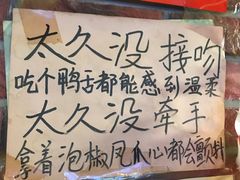 太久没 接吻
吃个鸭舌都能感到温柔
太久没牵手
拿着泡椒凤爪心都会颤抖